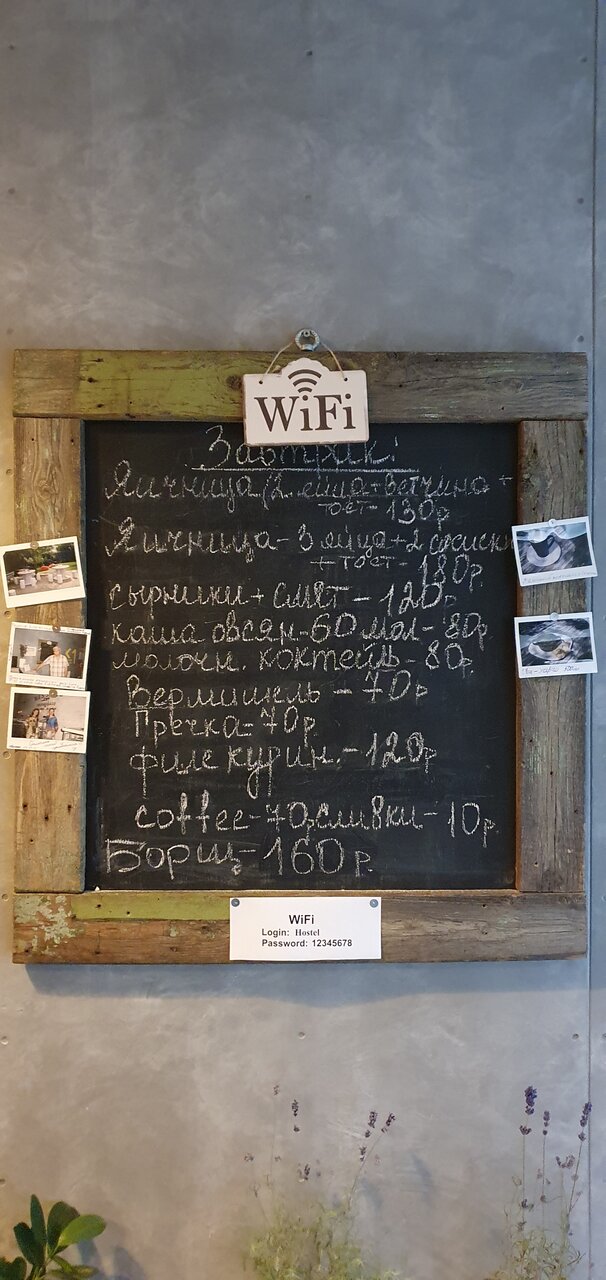 WiFi
Завтрак:
Яичница/2 яйца+ветчина+
тост-130р
Яичница-3 яйца+2 сосиски
+тост-130р.
сырники+смет-120р
каша овсян-60 мол-80р
молочн. коктейль-80р
Вермишель-70р
Гречка-70р
филе курин.-120р
coffee-70,сливки-10р
Борщ-160р.
WiFi
Login: Hostel
Password: 12345678